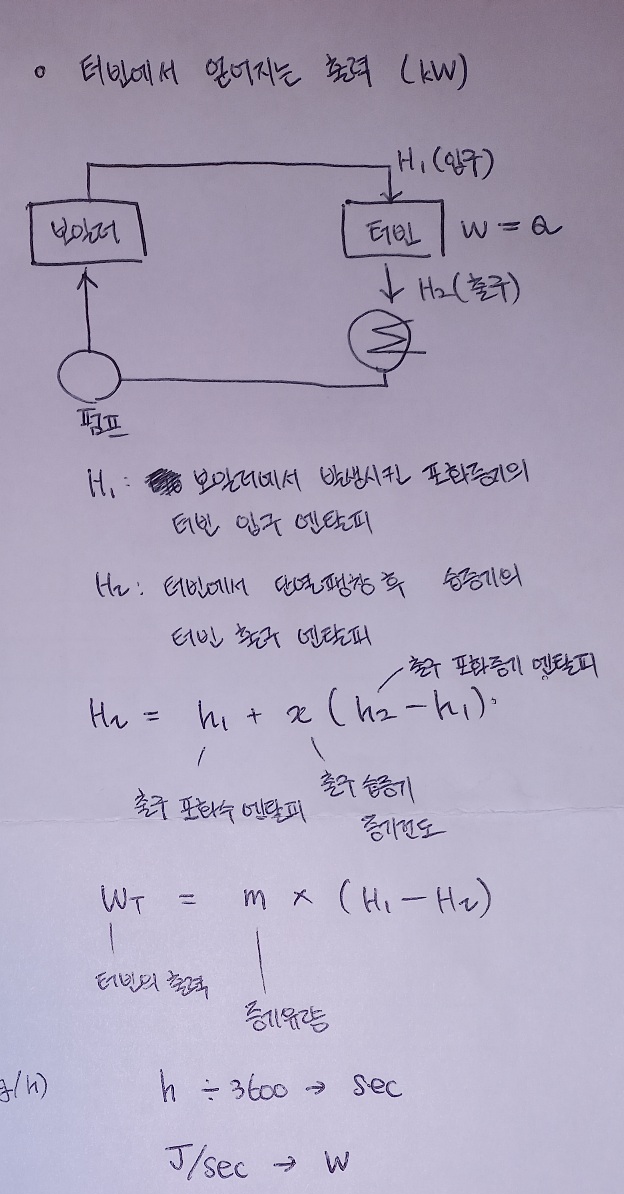 o 터빈에서 얻어지는 출력 (kW)
H₁(입구)
보일러
터빈
W = Q
H₂(출구)
펌프
H₁: 보일러에서 발생시킨 포화증기의
터빈 입구 엔탈피
H₂: 터빈에서 단열팽창 후 습증기의
터빈 출구 엔탈피
출구 포화증기 엔탈피
H₂ = h₁ + x (h₂-h₁)
출구 포화수 엔탈피
출구 습증기
증기건도
W_T = m × (H₁-H₂)
터빈의 출력
증기유량
g/h)
h ÷ 3600 → sec
J/sec → W